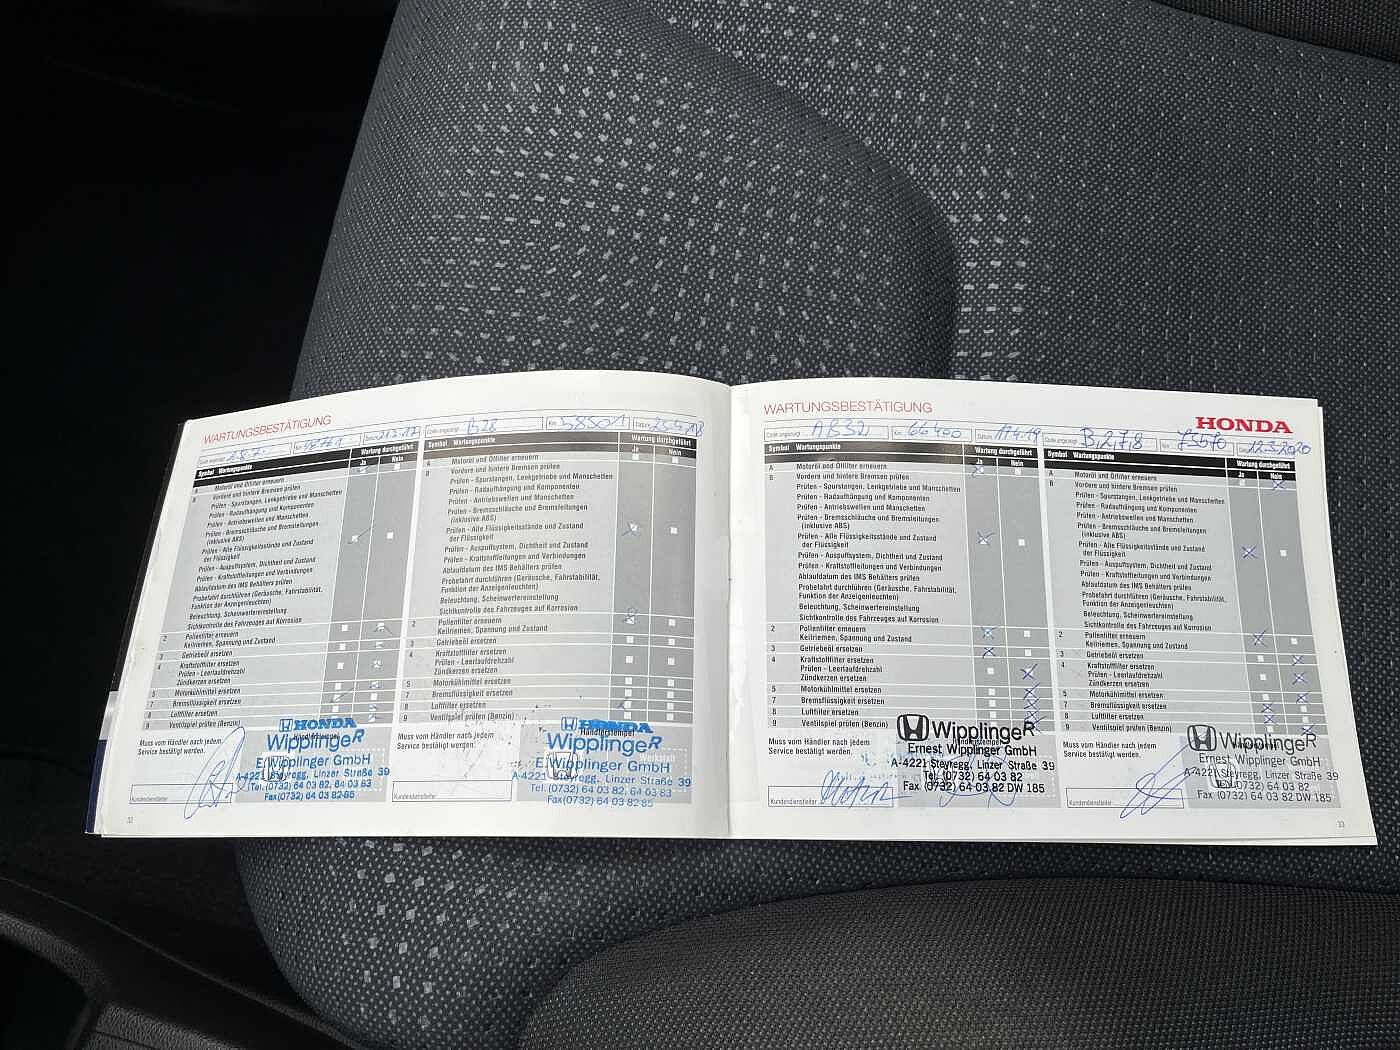 WARTUNGSBESTÄTIGUNG
Code angezeigt
Km
Datum
Symbol Wartungspunkte
Wartung durchgeführt
Ja Nein
A Motoröl und Ölfilter erneuern
B Vordere und hintere Bremsen prüfen
Prüfen - Spurstangen, Lenkgetriebe und Manschetten
Prüfen - Radaufhängung und Komponenten
Prüfen - Antriebswellen und Manschetten
Prüfen - Bremsschläuche und Bremsleitungen
(inklusive ABS)
Prüfen - Alle Flüssigkeitsstände und Zustand
der Flüssigkeit
Prüfen - Auspuffsystem, Dichtheit und Zustand
Prüfen - Kraftstoffleitungen und Verbindungen
Ablaufdatum des IMS Behälters prüfen
Probefahrt durchführen (Geräusche, Fahrstabilität,
Funktion der Anzeigenleuchten)
Beleuchtung, Scheinwerfereinstellung
Sichtkontrolle des Fahrzeuges auf Korrosion
2 Pollenfilter erneuern
Keilriemen, Spannung und Zustand
3 Getriebeöl ersetzen
4 Kraftstofffilter ersetzen
Prüfen - Leerlaufdrehzahl
Zündkerzen ersetzen
5 Motorkühlmittel ersetzen
7 Bremsflüssigkeit ersetzen
8 Luftfilter ersetzen
9 Ventilspiel prüfen (Benzin)
Muss vom Händler nach jedem
Service bestätigt werden.
Händlerstempel
HONDA
WipplingeR
E. Wipplinger GmbH
A-4221 Steyregg, Linzer Straße 39
Tel. (0732) 64 03 82, 64 03 83
Fax (0732) 64 03 82-85
Kundendienstleiter
32
Code angezeigt B28
Km 58501
Datum
Symbol Wartungspunkte
Wartung durchgeführt
Ja Nein
A Motoröl und Ölfilter erneuern
B Vordere und hintere Bremsen prüfen
Prüfen - Spurstangen, Lenkgetriebe und Manschetten
Prüfen - Radaufhängung und Komponenten
Prüfen - Antriebswellen und Manschetten
Prüfen - Bremsschläuche und Bremsleitungen
(inklusive ABS)
Prüfen - Alle Flüssigkeitsstände und Zustand
der Flüssigkeit
Prüfen - Auspuffsystem, Dichtheit und Zustand
Prüfen - Kraftstoffleitungen und Verbindungen
Ablaufdatum des IMS Behälters prüfen
Probefahrt durchführen (Geräusche, Fahrstabilität,
Funktion der Anzeigenleuchten)
Beleuchtung, Scheinwerfereinstellung
Sichtkontrolle des Fahrzeuges auf Korrosion
2 Pollenfilter erneuern
Keilriemen, Spannung und Zustand
3 Getriebeöl ersetzen
4 Kraftstofffilter ersetzen
Prüfen - Leerlaufdrehzahl
Zündkerzen ersetzen
5 Motorkühlmittel ersetzen
7 Bremsflüssigkeit ersetzen
8 Luftfilter ersetzen
9 Ventilspiel prüfen (Benzin)
Muss vom Händler nach jedem
Service bestätigt werden.
Händlerstempel
HONDA
WipplingeR
E. Wipplinger GmbH
A-4221 Steyregg, Linzer Straße 39
Tel. (0732) 64 03 82, 64 03 83
Fax (0732) 64 03 82-85
Kundendienstleiter
WARTUNGSBESTÄTIGUNG
HONDA
Code angezeigt AB32
Km 66400
Datum 11.4.19
Symbol Wartungspunkte
Wartung durchgeführt
Ja Nein
A Motoröl und Ölfilter erneuern
B Vordere und hintere Bremsen prüfen
Prüfen - Spurstangen, Lenkgetriebe und Manschetten
Prüfen - Radaufhängung und Komponenten
Prüfen - Antriebswellen und Manschetten
Prüfen - Bremsschläuche und Bremsleitungen
(inklusive ABS)
Prüfen - Alle Flüssigkeitsstände und Zustand
der Flüssigkeit
Prüfen - Auspuffsystem, Dichtheit und Zustand
Prüfen - Kraftstoffleitungen und Verbindungen
Ablaufdatum des IMS Behälters prüfen
Probefahrt durchführen (Geräusche, Fahrstabilität,
Funktion der Anzeigenleuchten)
Beleuchtung, Scheinwerfereinstellung
Sichtkontrolle des Fahrzeuges auf Korrosion
2 Pollenfilter erneuern
Keilriemen, Spannung und Zustand
3 Getriebeöl ersetzen
4 Kraftstofffilter ersetzen
Prüfen - Leerlaufdrehzahl
Zündkerzen ersetzen
5 Motorkühlmittel ersetzen
7 Bremsflüssigkeit ersetzen
8 Luftfilter ersetzen
9 Ventilspiel prüfen (Benzin)
Muss vom Händler nach jedem
Service bestätigt werden.
Händlerstempel
WipplingeR
Ernest Wipplinger GmbH
A-4221 Steyregg, Linzer Straße 39
Tel. (0732) 64 03 82
Fax (0732) 64 03 82 DW 185
Kundendienstleiter
Code angezeigt B,2,7,8
Km 75570
Datum 12.3.2020
Symbol Wartungspunkte
Wartung durchgeführt
Ja Nein
A Motoröl und Ölfilter erneuern
B Vordere und hintere Bremsen prüfen
Prüfen - Spurstangen, Lenkgetriebe und Manschetten
Prüfen - Radaufhängung und Komponenten
Prüfen - Antriebswellen und Manschetten
Prüfen - Bremsschläuche und Bremsleitungen
(inklusive ABS)
Prüfen - Alle Flüssigkeitsstände und Zustand
der Flüssigkeit
Prüfen - Auspuffsystem, Dichtheit und Zustand
Prüfen - Kraftstoffleitungen und Verbindungen
Ablaufdatum des IMS Behälters prüfen
Probefahrt durchführen (Geräusche, Fahrstabilität,
Funktion der Anzeigenleuchten)
Beleuchtung, Scheinwerfereinstellung
Sichtkontrolle des Fahrzeuges auf Korrosion
2 Pollenfilter erneuern
Keilriemen, Spannung und Zustand
3 Getriebeöl ersetzen
4 Kraftstofffilter ersetzen
Prüfen - Leerlaufdrehzahl
Zündkerzen ersetzen
5 Motorkühlmittel ersetzen
7 Bremsflüssigkeit ersetzen
8 Luftfilter ersetzen
9 Ventilspiel prüfen (Benzin)
Muss vom Händler nach jedem
Service bestätigt werden.
WipplingeR
Ernest Wipplinger GmbH
A-4221 Steyregg, Linzer Straße 39
Tel. (0732) 64 03 82
Fax (0732) 64 03 82 DW 185
Kundendienstleiter
33